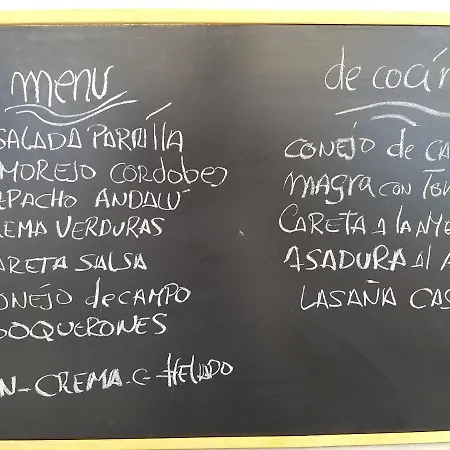 menu
SALADA PARRILLA
MOREJO CORDOBES
PACHO ANDALU
REMA VERDURAS
ARETA SALSA
ONEJO de CAMPO
BOQUERONES
N-CREMA-C-HELADO
de cocin
CONEJO de CA
MAGRA CON TOM
CARETA A LA NYE
ASADURA Al A
LASAÑA CAS